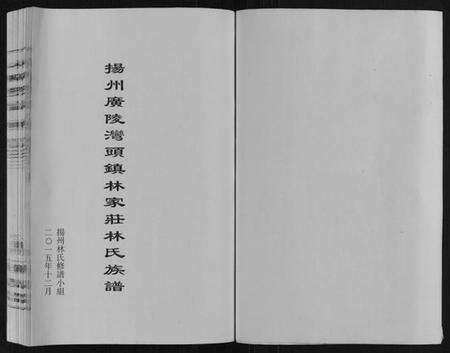 揚州廣陵灣頭鎮林家莊林氏族譜
揚州林氏修譜小組
二〇一五年十二月